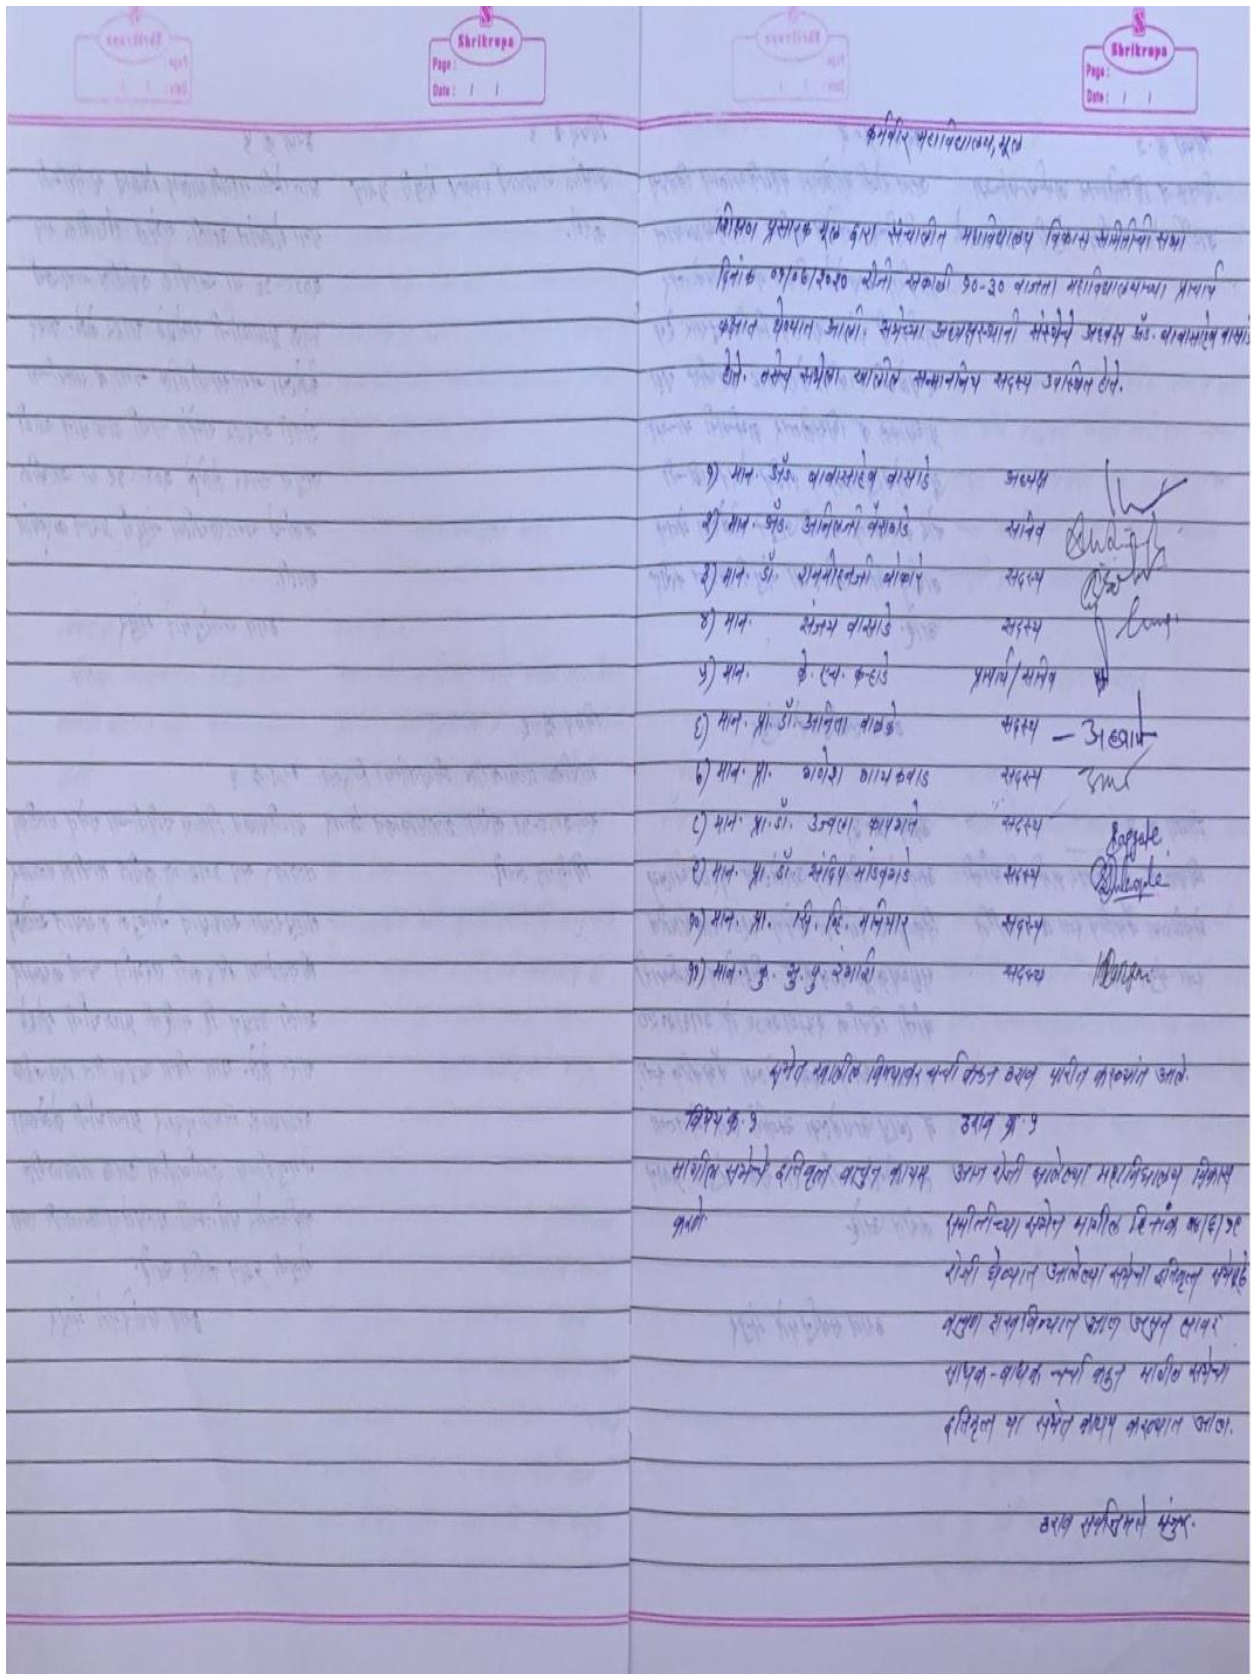 Shrikrupa
Page :
Date : / /
Shrikrupa
Page :
Date : / /
कर्मवीर महाविद्यालय, मूल
शिक्षण प्रसारक मूल द्वारा संचालीत महाविद्यालय विकास समितीची सभा
दिनांक ०१/०७/२०२० रोजी सकाळी १०-३० वाजता महाविद्यालयाच्या प्राचार्य
कक्षात घेण्यात आली. सभेच्या अध्यक्षस्थानी संस्थेचे अध्यक्ष अॅड. बाबासाहेब वासाडे
होते. तसेच सभेला खालील सन्माननिय सदस्य उपस्थित होते.
१) मान. अॅड. बाबासाहेब वासाडे अध्यक्ष
२) मान. अॅड. अनिलजी वैरागडे सचिव
३) मान. डॉ. राममोहनजी बोकारे सदस्य
४) मान. संजय वासाडे सदस्य
५) मान. के. एच. कऱ्हाडे प्राचार्य/सचिव
६) मान. प्रा. डॉ. अनिता वाळके सदस्य
७) मान. प्रा. गणेश गायकवाड सदस्य
८) मान. प्रा. डॉ. उज्वला कापगते सदस्य
९) मान. प्रा. डॉ. संदिप मांडवगडे सदस्य
१०) मान. प्रा. सि. व्हि. मनियार सदस्य
११) मान. कु. सु. पु. रंगारी सदस्य
सभेत खालील विषयावर चर्चा होऊन ठराव पारीत करण्यांत आले.
विषय क्र. १ ठराव क्र. १
मागील सभेचे इतिवृत्त वाचुन कायम आज रोजी झालेल्या महाविद्यालय विकास
करणे. समितीच्या सभेत मागील दिनांक
रोजी घेण्यात आलेल्या सभेचा इतिवृत्त सभेपुढे
वाचुन दाखविण्यात आला असुन त्यावर
साधक-बाधक चर्चा करुन मागील सभेचा
इतिवृत्त या सभेत कायम करण्यात आला.
ठराव सर्वानुमते मंजुर.